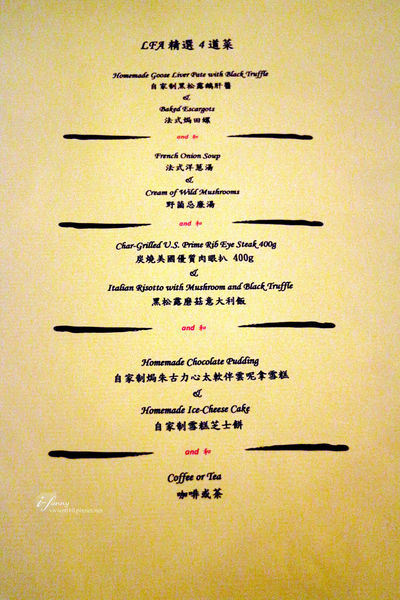 LFA 精選 4 道菜
Homemade Goose Liver Pate with Black Truffle
自家制黑松露鵝肝醬
&
Baked Escargots
法式焗田螺
and 和
French Onion Soup
法式洋蔥湯
&
Cream of Wild Mushrooms
野菌忌廉湯
and 和
Char-Grilled U.S. Prime Rib Eye Steak 400g
炭燒美國優質肉眼扒 400g
&
Italian Risotto with Mushroom and Black Truffle
黑松露磨菇意大利飯
and 和
Homemade Chocolate Pudding
自家制焗朱古力心太軟伴雲呢拿雪糕
&
Homemade Ice-Cheese Cake
自家制雪糕芝士餅
and 和
Coffee or Tea
咖啡或茶